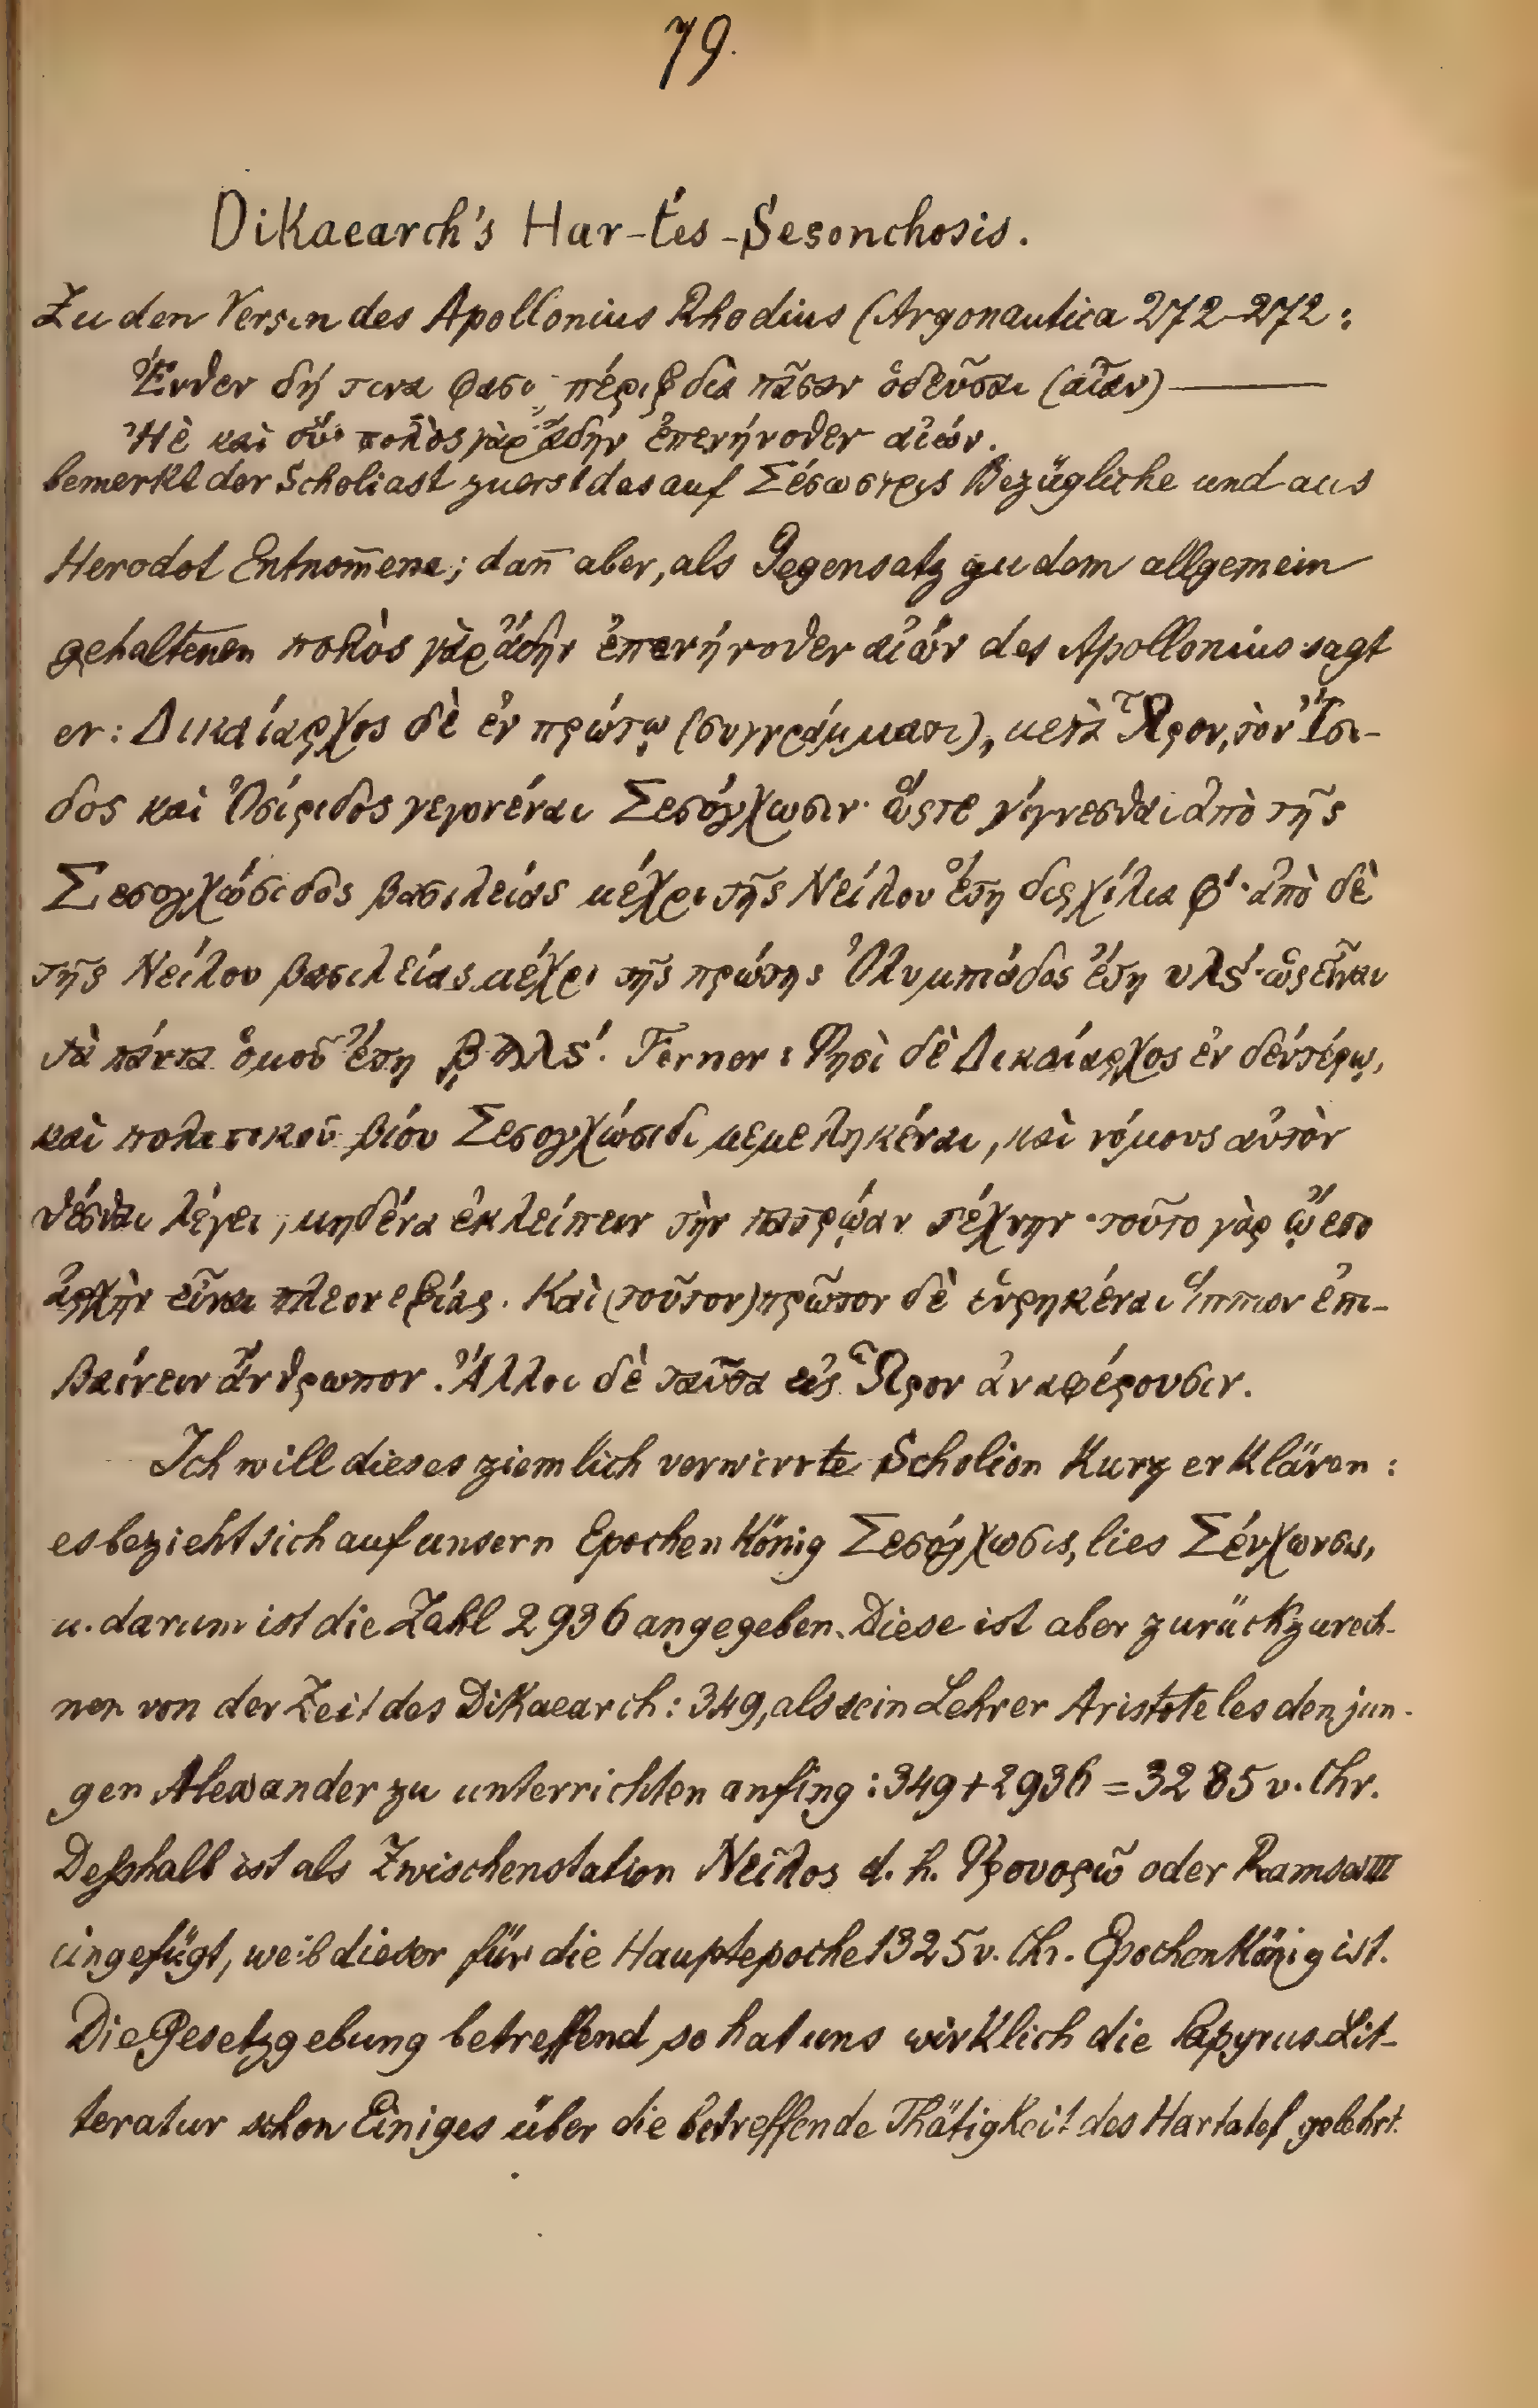 79.
Dikaearch's Har-tes-Sesonchosis.
Zu den Versen des Apollonius Rhodius (Argonautica 272–272:
Ἔνθεν δή τινα φασι πέριξ διὰ πᾶσαν ὁδεῦσαι (αἶαν)———
Ἠὲ καὶ οὔ· πολὺς γὰρ ἄδην ἐπενήνοθεν αἰών.
bemerkt der Scholiast zuerst das auf Σέσωστρις Bezügliche und aus
Herodot Entnom̄ene; dan̄ aber, als Gegensatz zu dem allgemein
gehaltenen πολὺς γὰρ ἄδην ἐπενήνοθεν αἰών des Apollonius sagt
er: Δικαίαρχος δὲ ἐν πρώτῳ (συγγράμματι), μετὰ Ὧρον, τὸν Ἴσι-
δος καὶ Ὀσίριδος γεγονέναι Σεσόγχωσιν· ὥςτε γίγνεσθαι ἀπὸ τῆς
Σεσογχώσιδος βασιλείας μέχρι τῆς Νείλου ἔτη διςχίλια φ´· ἀπὸ δὲ
τῆς Νείλου βασιλείας μέχρι τῆς πρώτης Ὀλυμπιάδος ἔτη υλς´· ὡς εἶναι
τὰ πάντα ὁμοῦ ἔτη βϡλς´. Ferner: Φησὶ δὲ Δικαίαρχος ἐν δευτέρῳ,
καὶ πολιτικοῦ βίου Σεσογχώσιδι μεμεληκέναι, καὶ νόμους αὐτὸν
θέσθαι λέγει, μηδένα ἐκλείπειν τὴν πατρῴαν τέχνην· τοῦτο γὰρ ᾤετο
ἀρχὴν εἶναι πλεονεξίας. Καὶ (τοῦτον) πρῶτον δὲ εὑρηκέναι ἵππων ἐπι-
βαίνειν ἄνθρωπον. Ἄλλοι δὲ ταῦτα εἰς Ὧρον ἀναφέρουσιν.
Ich will dieses ziemlich verwirrte Scholion kurz erklären:
es bezieht sich auf unsern Epochenkönig Σεσόγχωσις, lies Σένχωνσις,
u. darum ist die Zahl 2936 angegeben. Diese ist aber zurückzurech-
nen von der Zeit des Dikaearch: 349, als sein Lehrer Aristoteles den jun-
gen Alexander zu unterrichten anfing: 349+2936=3285 v. Chr.
Deßhalb ist als Zwischenstation Νεῖλος d. h. Φρουορῶ oder Ramses III
eingefügt, weil dieser für die Hauptepoche 1325 v. Chr. Epochenkönig ist.
Die Gesetzgebung betreffend, so hat uns wirklich die Papyrus-Lit-
teratur schon Einiges über die betreffende Thätigkeit des Hartatef gelehrt.